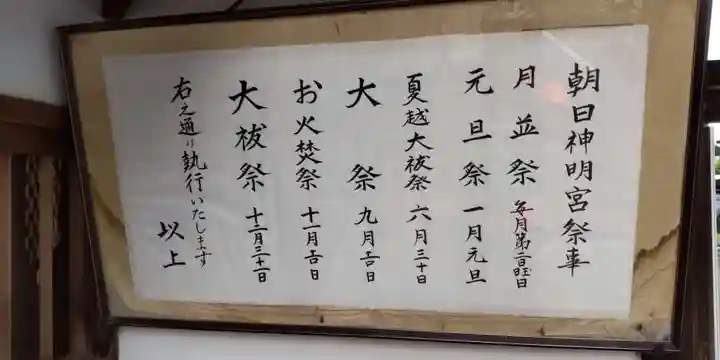 朝日神明宮祭事
月並祭 毎月第二日旺日
元旦祭 一月元旦
夏越大祓祭 六月三十日
大祭 九月 日
お火焚祭 十一月 日
大祓祭 十二月三十一日
右之通り執行いたします
以上